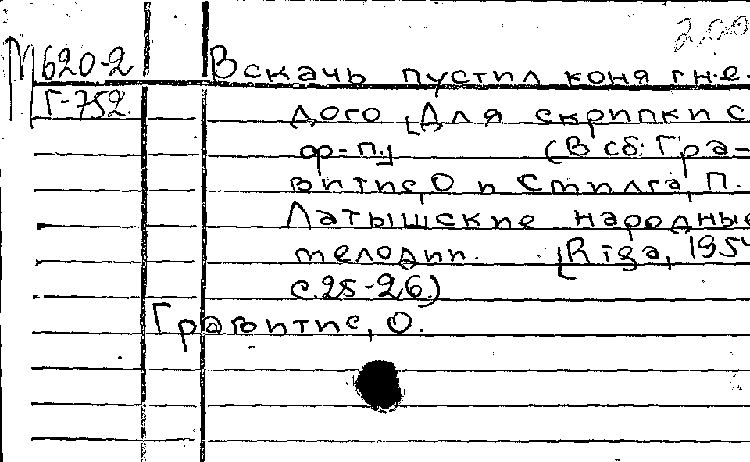 200
М620-2 Вскачь пустил коня гне-
Г-752 дого [Для скрипки с
ф-п.] (В сб: Гра-
витис, О и Стилга, П.
Латышские народные
мелодии. [Riga, 1954
с.25-26)
Гравитис, О.